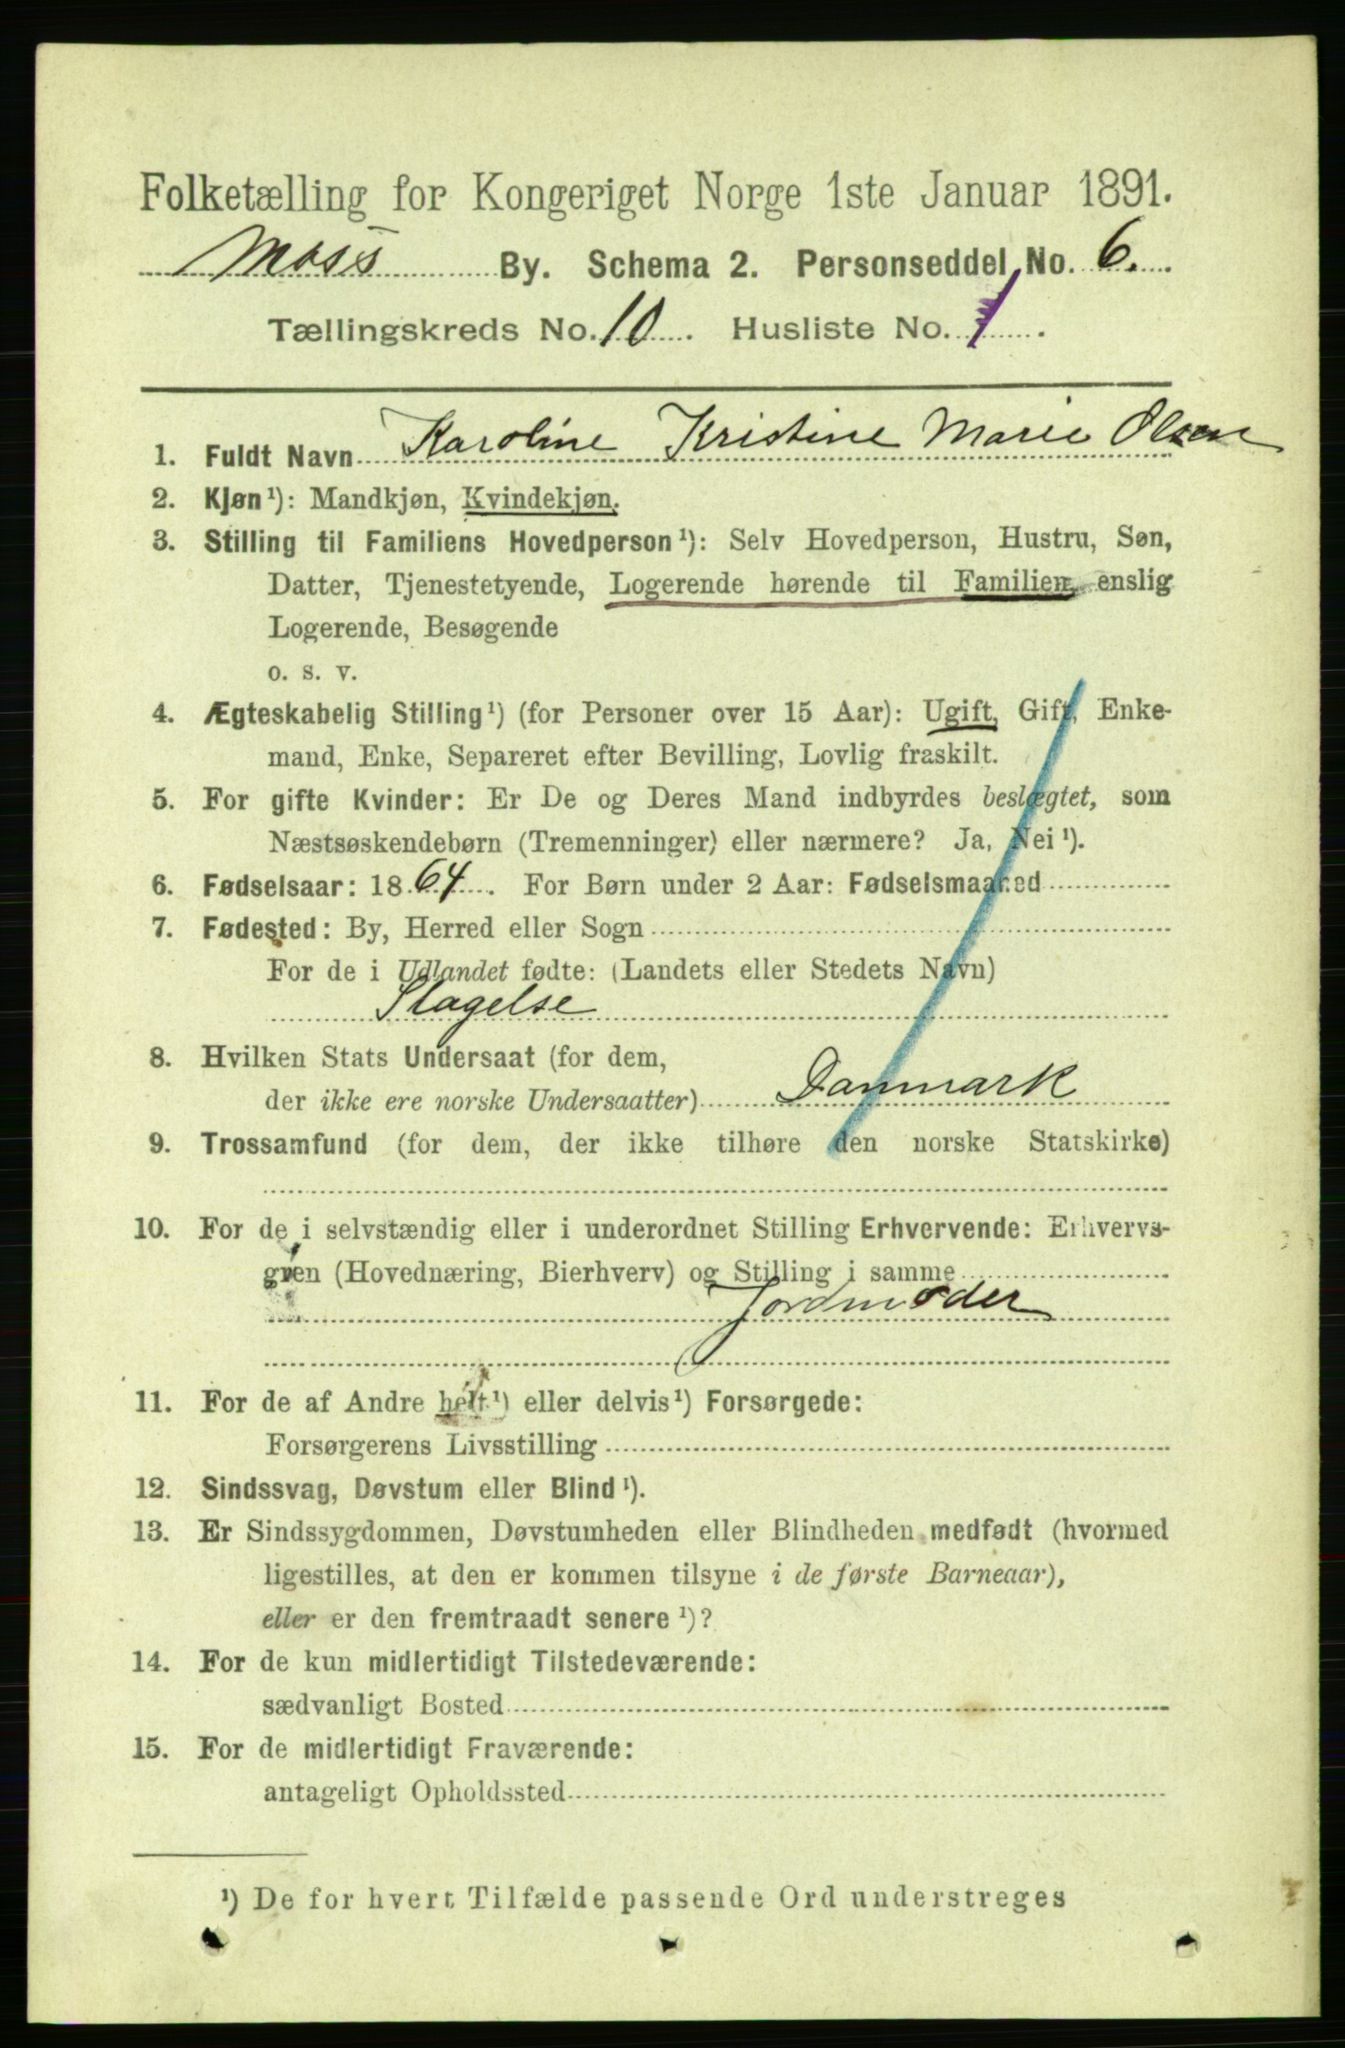 Folketælling for Kongeriget Norge 1ste Januar 1891.
Moss By. Schema 2. Personseddel No. 6.
Tællingskreds No. 10. Husliste No. 1.
1. Fuldt Navn Karoline Kristine Marie Olsen
2. Kjøn¹): Mandkjøn, Kvindekjøn.
3. Stilling til Familiens Hovedperson¹): Selv Hovedperson, Hustru, Søn,
Datter, Tjenestetyende, Logerende hørende til Familien, enslig
Logerende, Besøgende
o. s. v.
4. Ægteskabelig Stilling¹) (for Personer over 15 Aar): Ugift, Gift, Enke-
mand, Enke, Separeret efter Bevilling, Lovlig fraskilt.
5. For gifte Kvinder: Er De og Deres Mand indbyrdes beslægtet, som
Næstsøskendebørn (Tremenninger) eller nærmere? Ja, Nei¹).
6. Fødselsaar: 1864. For Børn under 2 Aar: Fødselsmaaned
7. Fødested: By, Herred eller Sogn
For de i Udlandet fødte: (Landets eller Stedets Navn)
Slagelse
8. Hvilken Stats Undersaat (for dem,
der ikke ere norske Undersaatter) Danmark
9. Trossamfund (for dem, der ikke tilhøre den norske Statskirke)
10. For de i selvstændig eller i underordnet Stilling Erhvervende: Erhvervs-
gren (Hovednæring, Bierhverv) og Stilling i samme
Jordmoder
11. For de af Andre helt¹) eller delvis¹) Forsørgede:
Forsørgerens Livsstilling
12. Sindssvag, Døvstum eller Blind¹).
13. Er Sindssygdommen, Døvstumheden eller Blindheden medfødt (hvormed
ligestilles, at den er kommen tilsyne i de første Barneaar),
eller er den fremtraadt senere¹)?
14. For de kun midlertidigt Tilstedeværende:
sædvanligt Bosted
15. For de midlertidigt Fraværende:
antageligt Opholdssted
¹) De for hvert Tilfælde passende Ord understreges